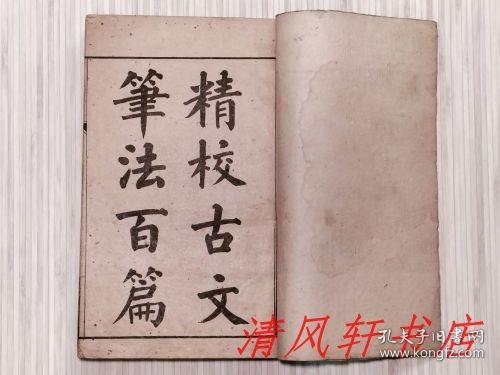 精校古文
筆法百篇
清风轩书店
孔夫子旧书网
www.kongfz.com